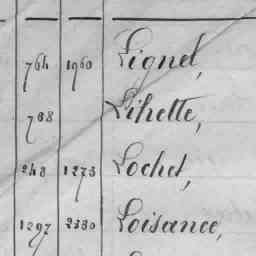 764 1960 Lignel,
788 Lihette,
248 1273 Lochet,
1297 2380 Loisance,